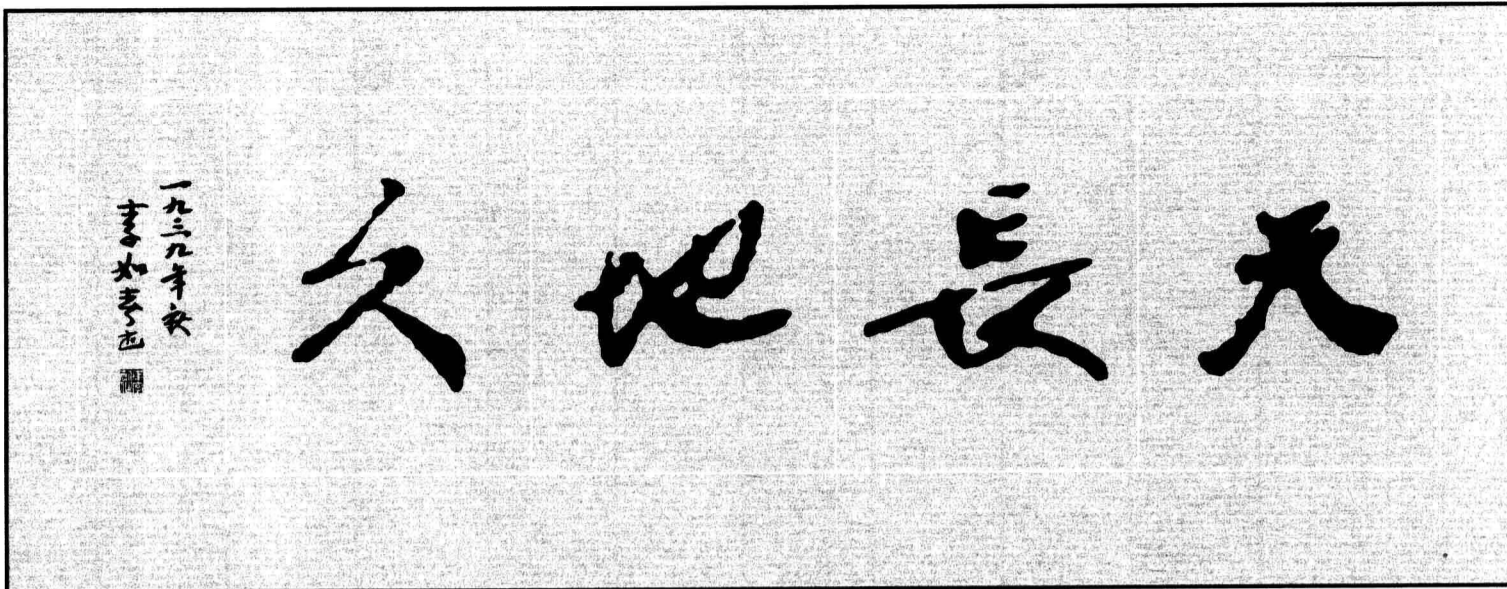 天長地久
一九三九年秋
李如春書